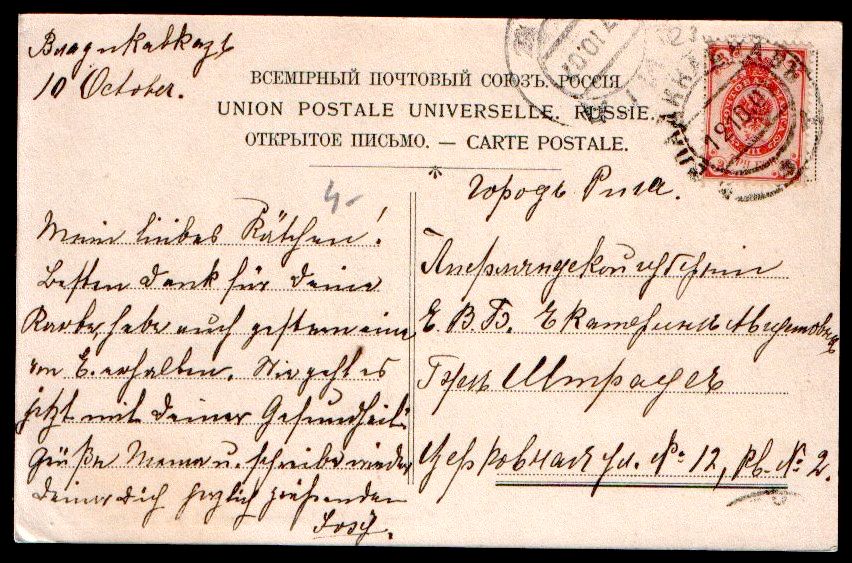 Владикавказъ
10 October.
ВСЕМІРНЫЙ ПОЧТОВЫЙ СОЮЗЪ. РОССІЯ
UNION POSTALE UNIVERSELLE. RUSSIE.
ОТКРЫТОЕ ПИСЬМО. — CARTE POSTALE.
4-
Mein liebes Kätchen!
Besten Dank für Deine
Karte, habe auch gestern eine
von E. erhalten. Wie geht es
jetzt mit Deiner Gesundheit?
Grüße Mama u. schreibe wieder
Deiner Dich herzlich grüßenden
Городъ Рига.
Лифляндской губерніи
Е. В. Б. Екатеринѣ Августовнѣ
Церковная ул. № 12, кв. № 2.